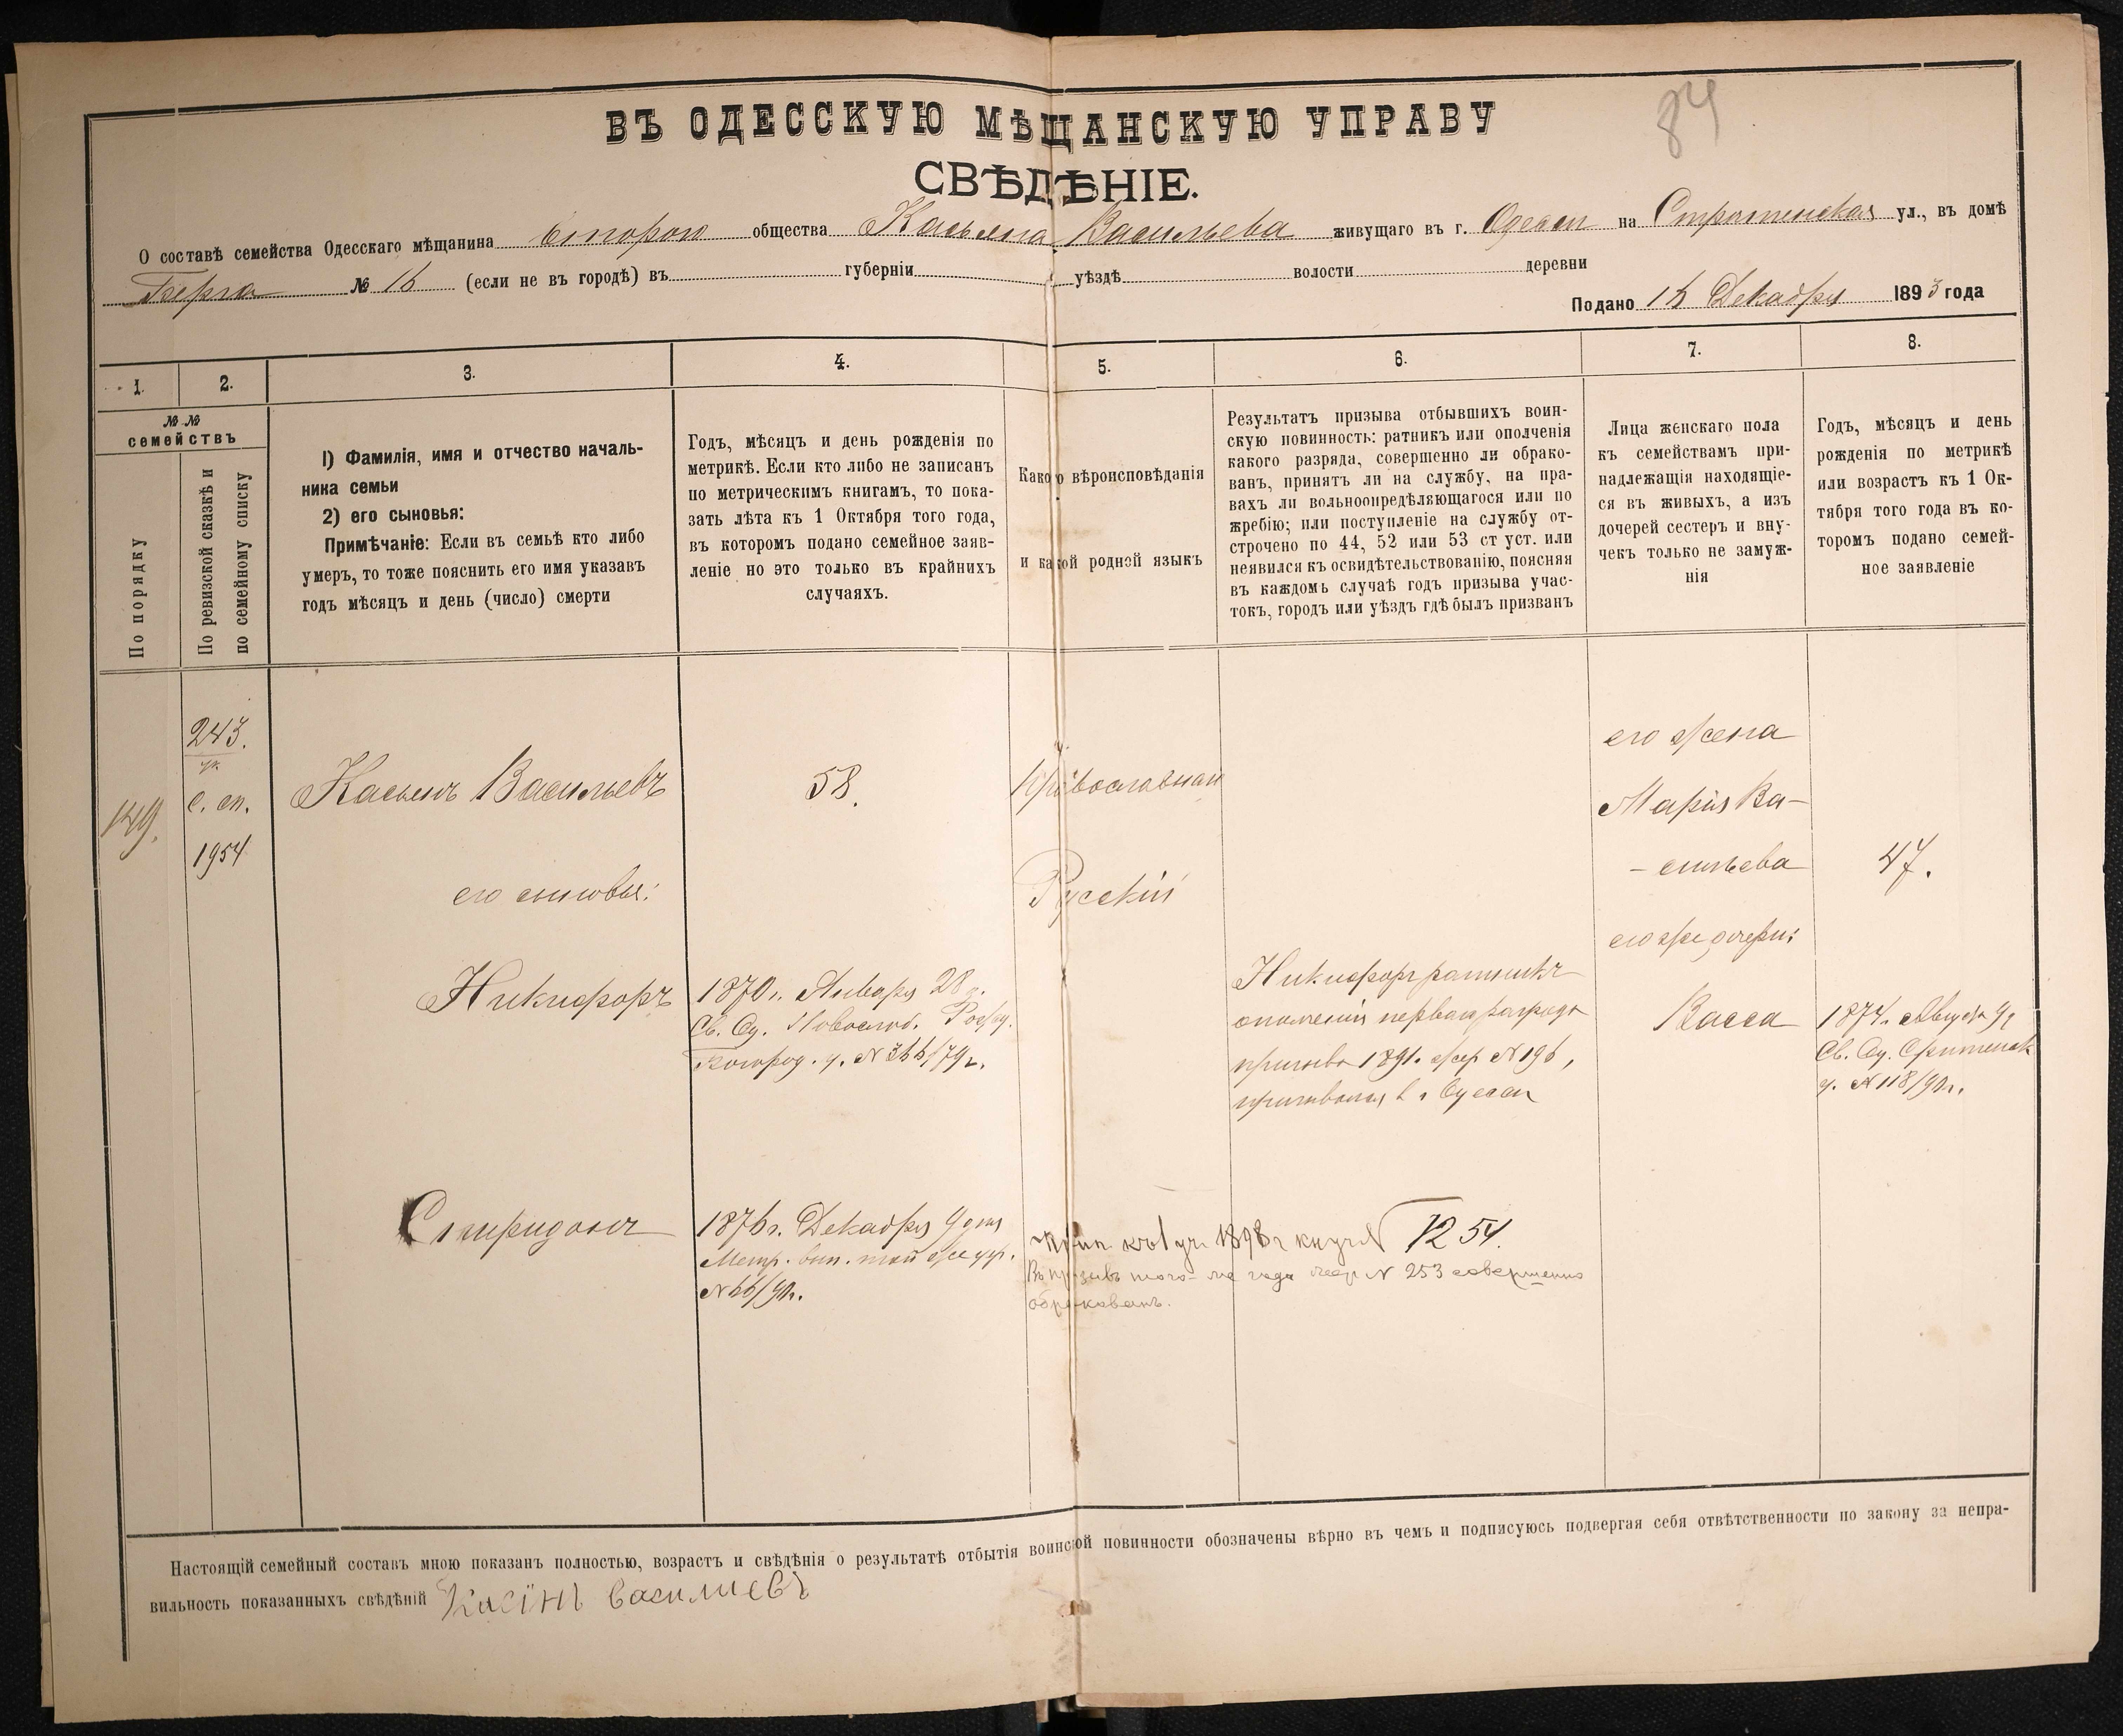 84
ВЪ ОДЕССКУЮ МѢЩАНСКУЮ УПРАВУ
СВѢДѢНІЕ.
О составѣ семейства Одесскаго мѣщанина второго общества Касьяна Васильева живущаго въ г. Одессѣ на ул., въ домѣ
№ (если не въ городѣ) въ губерніи уѣздѣ волости деревни
Подано Декабря 1893 года
1. 2. 3. 4. 5. 6. 7. 8.
№ №
семействъ
По порядку
По ревизской сказкѣ и
по семейному списку
1) Фамилія, имя и отчество началь-
ника семьи
2) его сыновья:
Примѣчаніе: Если въ семьѣ кто либо
умеръ, то тоже пояснить его имя указавъ
годъ мѣсяцъ и день (число) смерти
Годъ, мѣсяцъ и день рожденія по
метрикѣ. Если кто либо не записанъ
по метрическимъ книгамъ, то пока-
зать лѣта къ 1 Октября того года,
въ которомъ подано семейное заяв-
леніе но это только въ крайнихъ
случаяхъ.
Какого вѣроисповѣданія
и какой родной языкъ
Результатъ призыва отбывшихъ воин-
скую повинность: ратникъ или ополченія
какого разряда, совершенно ли обрако-
ванъ, принятъ ли на службу, на пра-
вахъ ли вольноопредѣляющагося или по
жребію; или поступленіе на службу от-
строчено по 44, 52 или 53 ст уст. или
неявился къ освидѣтельствованію, поясняя
въ каждомъ случаѣ годъ призыва учас-
токъ, городъ или уѣздъ гдѣ былъ призванъ
Лица женскаго пола
къ семействамъ при-
надлежащія находящіе-
ся въ живыхъ, а изъ
дочерей сестеръ и вну-
чекъ только не замуж-
нія
Годъ, мѣсяцъ и день
рожденія по метрикѣ
или возрастъ къ 1 Ок-
тября того года въ ко-
торомъ подано семей-
ное заявленіе
149.
243.
с. сп.
1954
Касьянъ Васильевъ
58.
Православнаго
Русскій
его жена
Марія Ва-
-сильева
47.
его сыновья:
его же дочери:
Никифоръ
1870 г. Января 28
Св. Од.
Никифоръ ратникъ
ополченія перваго разряда
призыва 1891 г. жер № 196,
призывался въ г. Одессѣ
Васса
1874 г. Августа 9
Св. Од. Срѣтенск
ч. № 118/90 г.
Спиридонъ
1876 г. Декабря 9 дня
Метр. вып. той же цер.
№ 66/90 г.
Прип. къ 1 уч. 1898 г № 1254.
Въ призывѣ того-же года жер № 253 совершенно
обракованъ.
Настоящій семейный составъ мною показанъ полностью, возрастъ и свѣдѣнія о результатѣ отбытія воинской повинности обозначены вѣрно въ чемъ и подписуюсь подвергая себя отвѣтственности по закону за непра-
вильность показанныхъ свѣдѣній Касїнъ Василиевъ